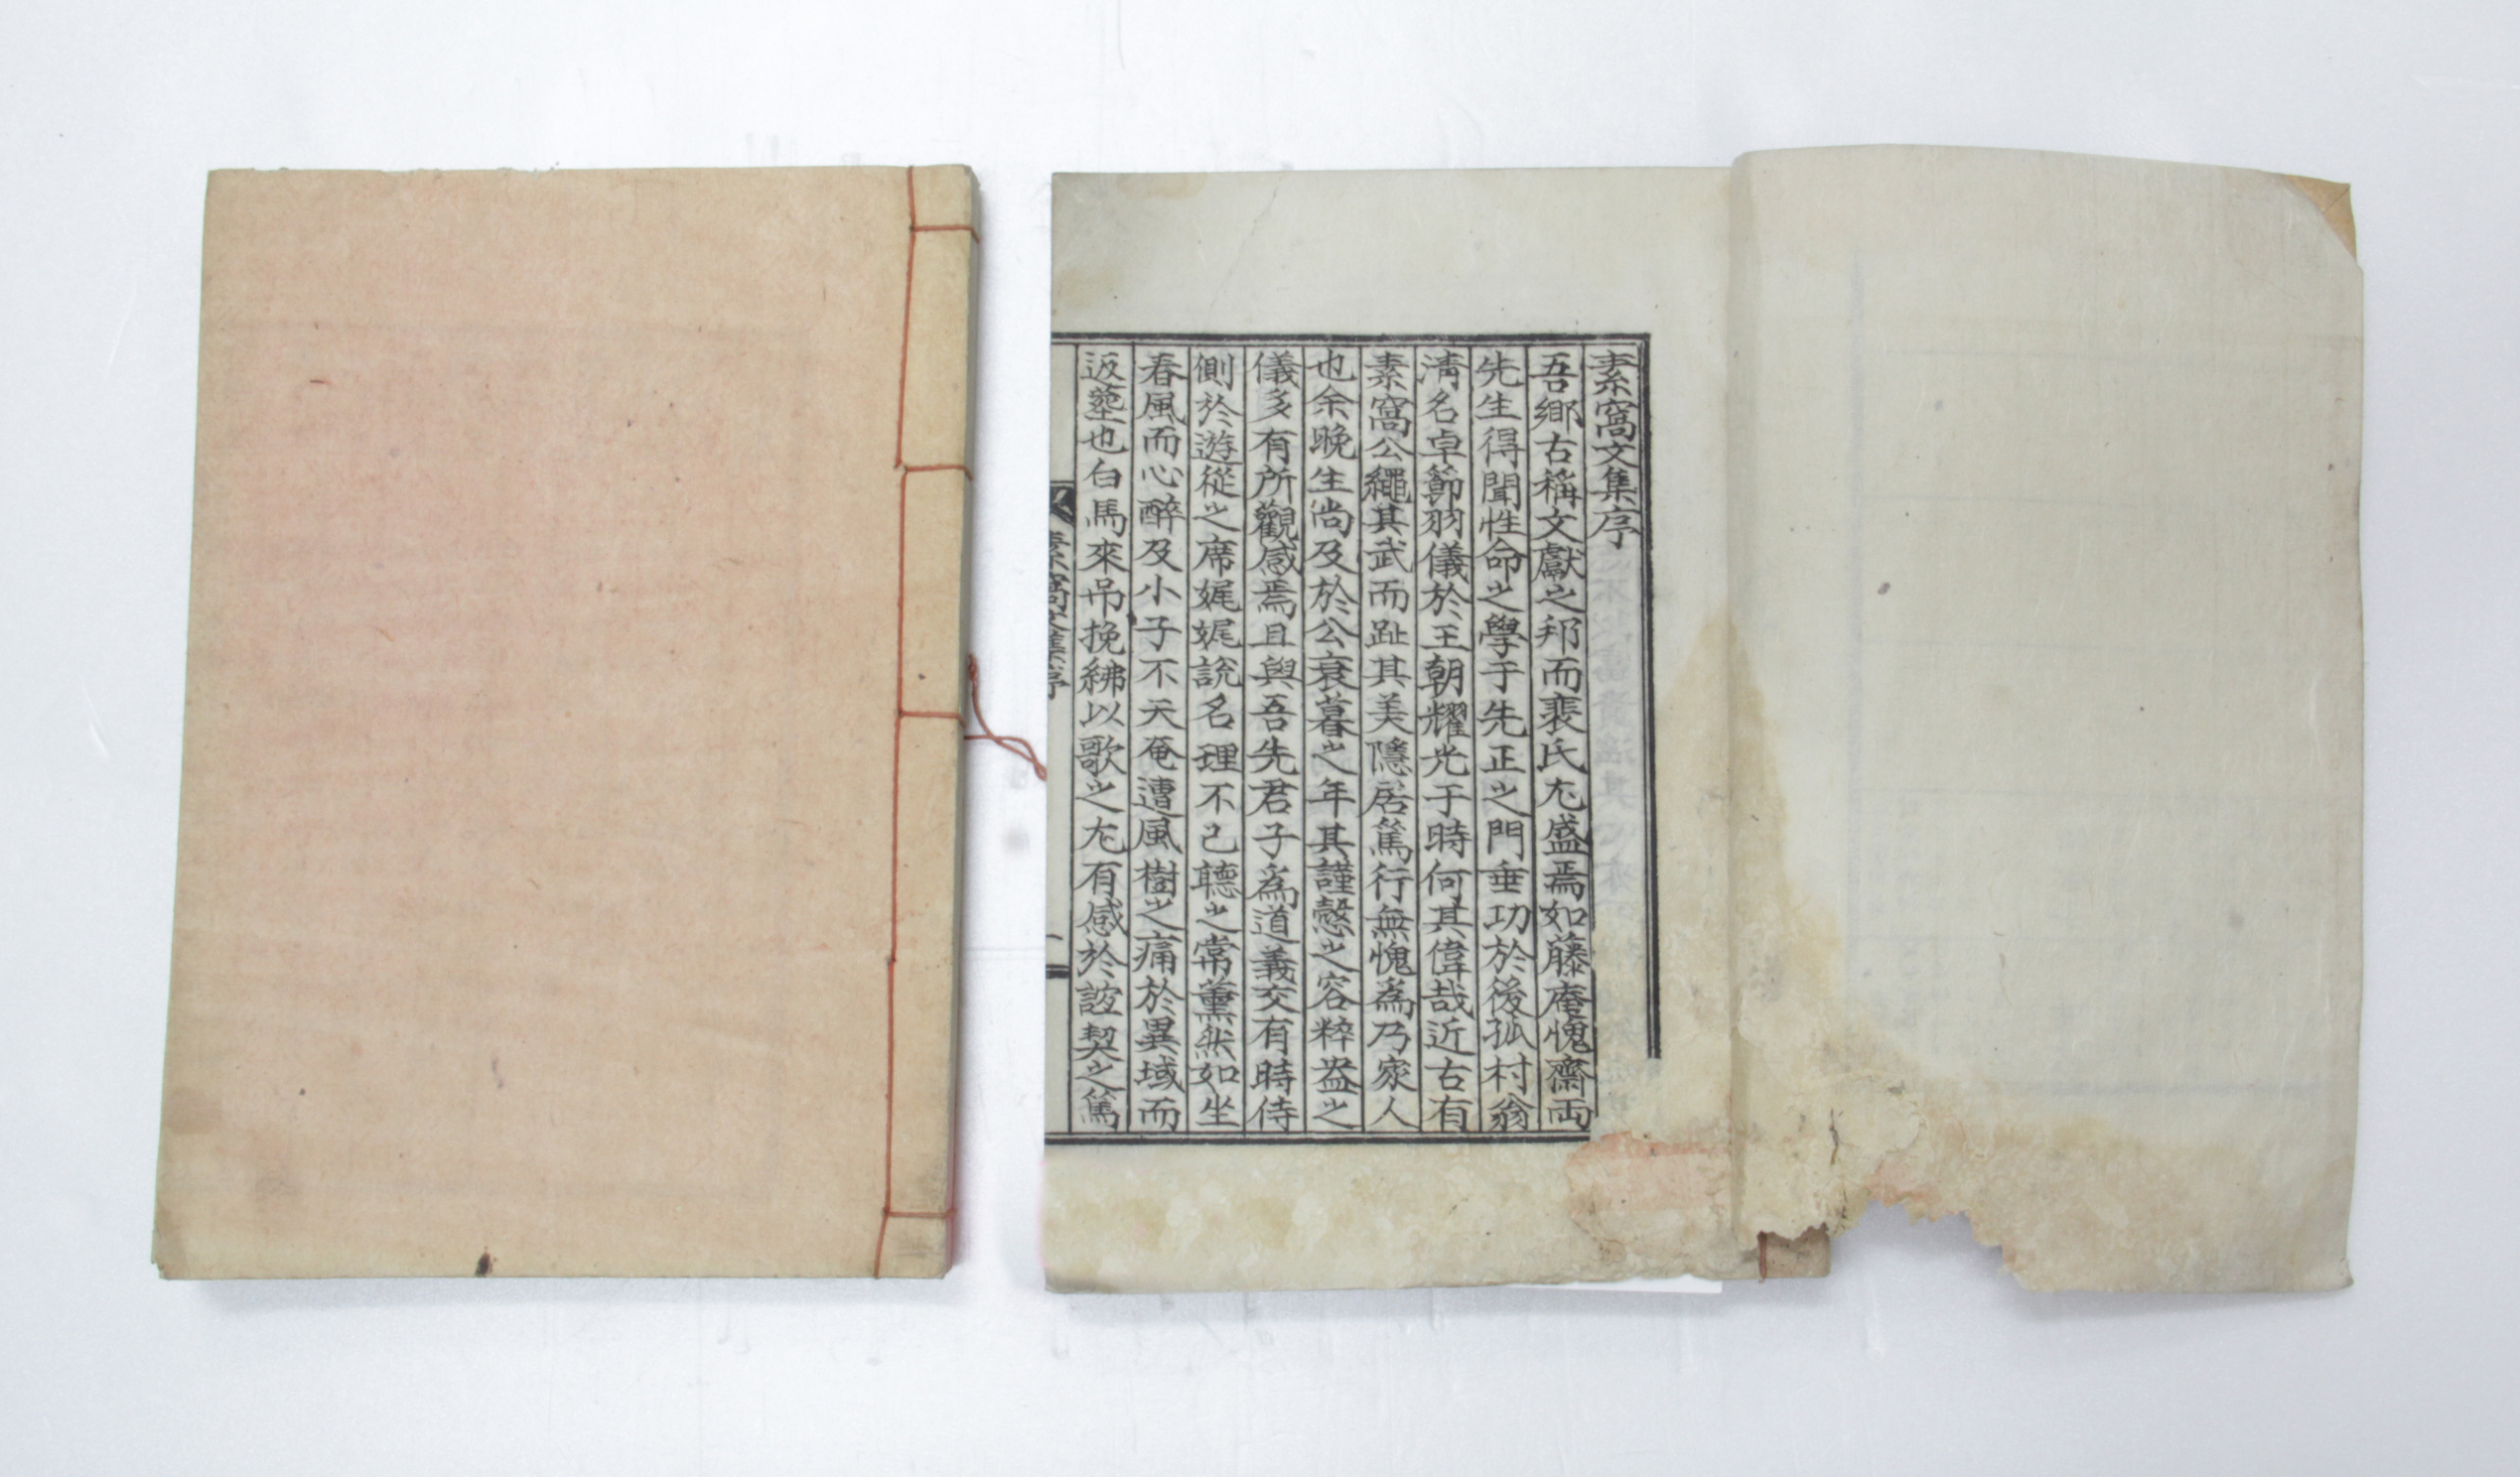 素窩文集序
吾鄉古稱文獻之邦而裵氏尤盛焉如藤庵愧齋両
先生得聞性命之學于先正之門垂功於後孤村翁
淸名卓節羽儀於王朝耀光于時何其偉哉近古有
素窩公繩其武而趾其美隱居篤行無愧爲乃家人
也余晚生尙及於公衰暮之年其謹慤之容粹盎之
儀多有所觀感焉且與吾先君子爲道義交有時侍
側於遊從之席娓娓說名理不已聽之常薰然如坐
春風而心醉及小子不天奄遭風樹之痛於異域而
返葬也白馬來吊挽紼以歌之尤有感於誼契之篤
素窩文集序
一